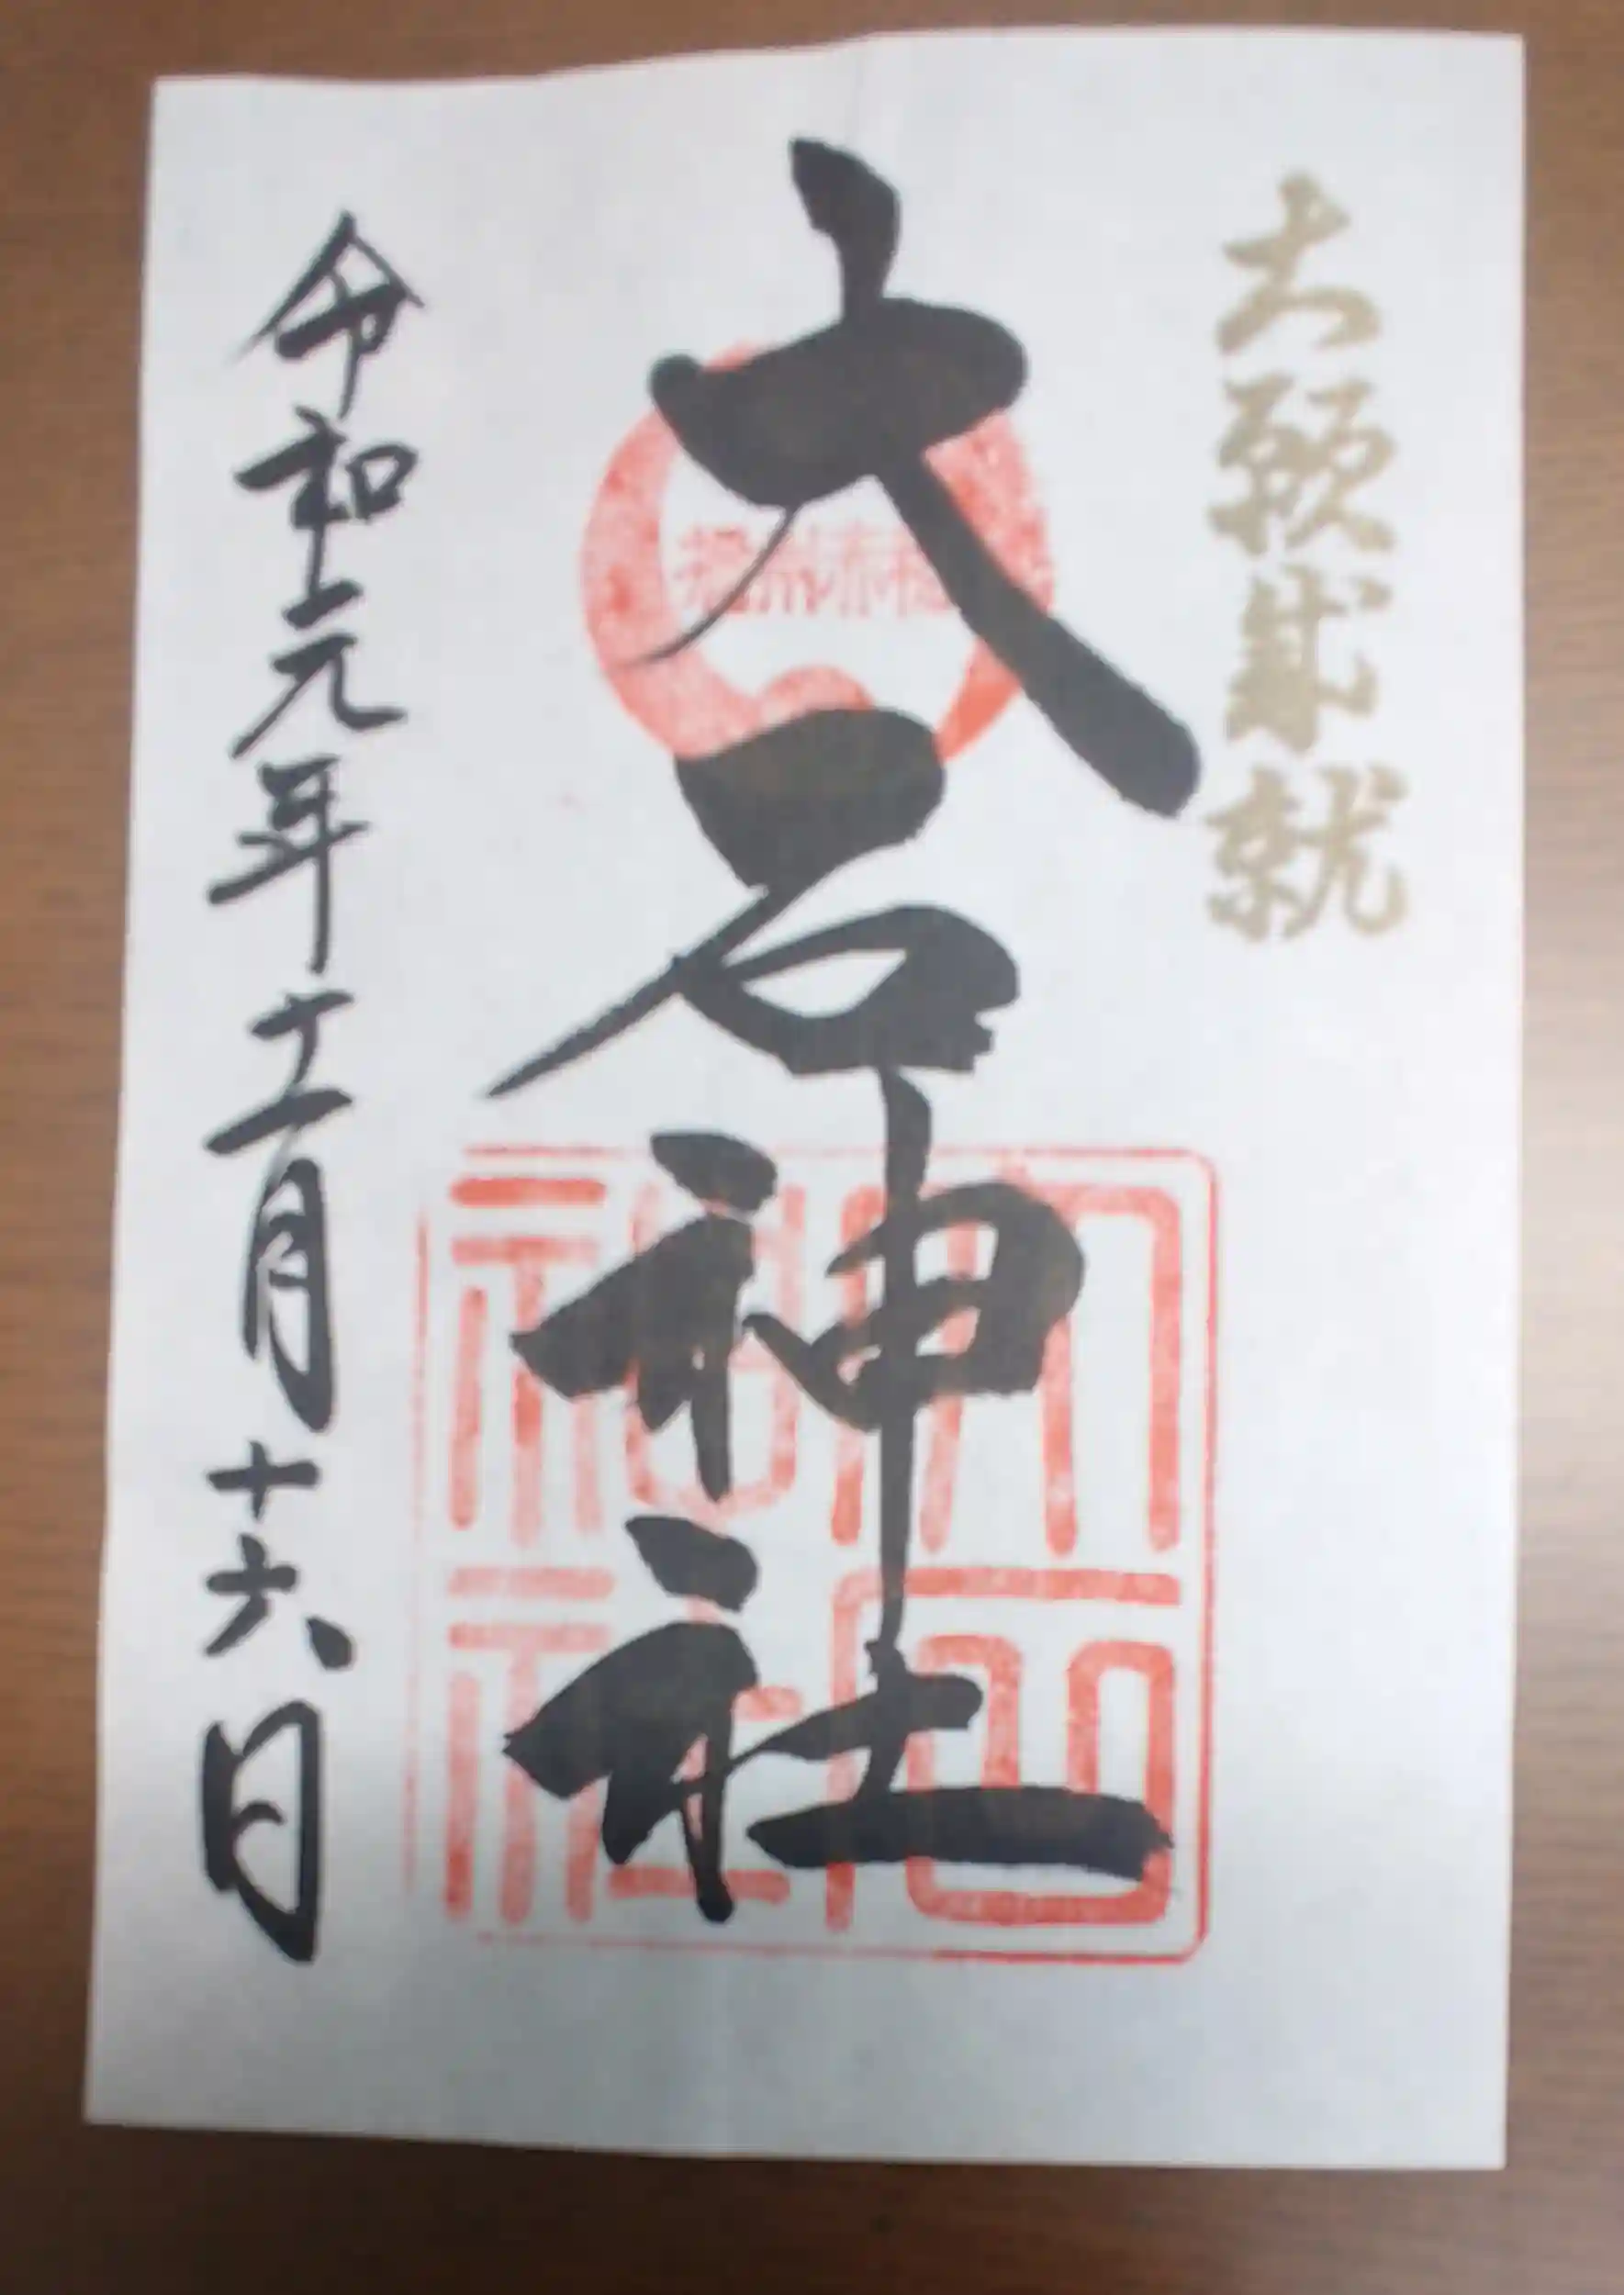 大願成就
大石神社
播州赤穂
大石神社
令和元年十二月十六日